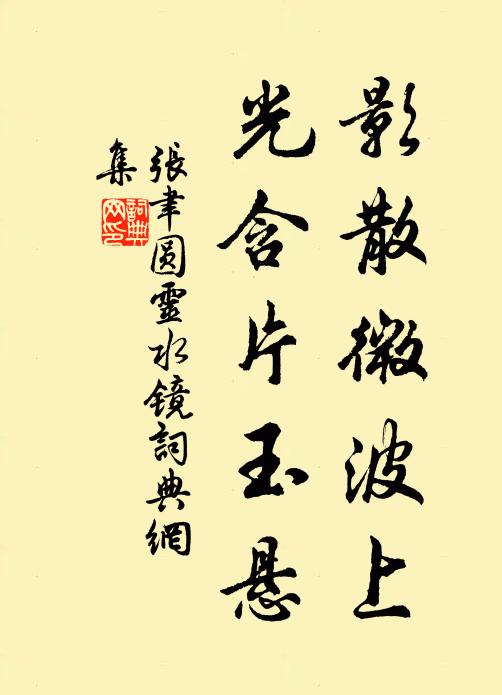 影散微波上
光含片玉悬
張聿圓靈水镜詞典網
集
詞典网印